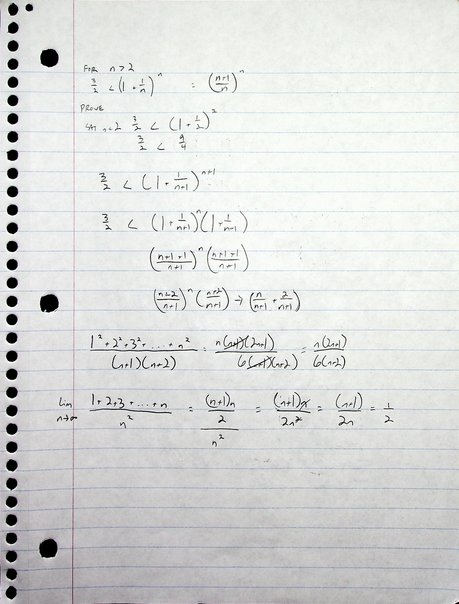 FOR n > 2
3/2 < (1 + 1/n)^n = ((n+1)/n)^n
PROVE
n=2 3/2 < (1 + 1/2)^2
3/2 < 9/4
3/2 < (1 + 1/(n+1))^(n+1)
3/2 < (1 + 1/(n+1))^n (1 + 1/(n+1))
((n+1+1)/(n+1))^n ((n+1+1)/(n+1))
((n+2)/(n+1))^n ((n+2)/(n+1)) → (n/(n+1) + 2/(n+1))
(1^2 + 2^2 + 3^2 + ... + n^2)/((n+1)(n+2)) = n(n+1)(2n+1)/(6(n+1)(n+2)) = n(2n+1)/(6(n+2))
lim n→∞ (1+2+3+...+n)/n^2 = ((n+1)n/2)/n^2 = (n+1)n/(2n^2) = (n+1)/(2n) = 1/2